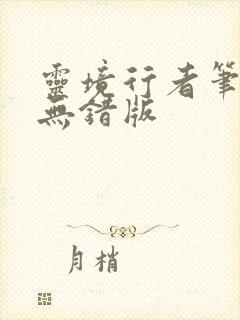 靈境行者筆
無錯版
月梢